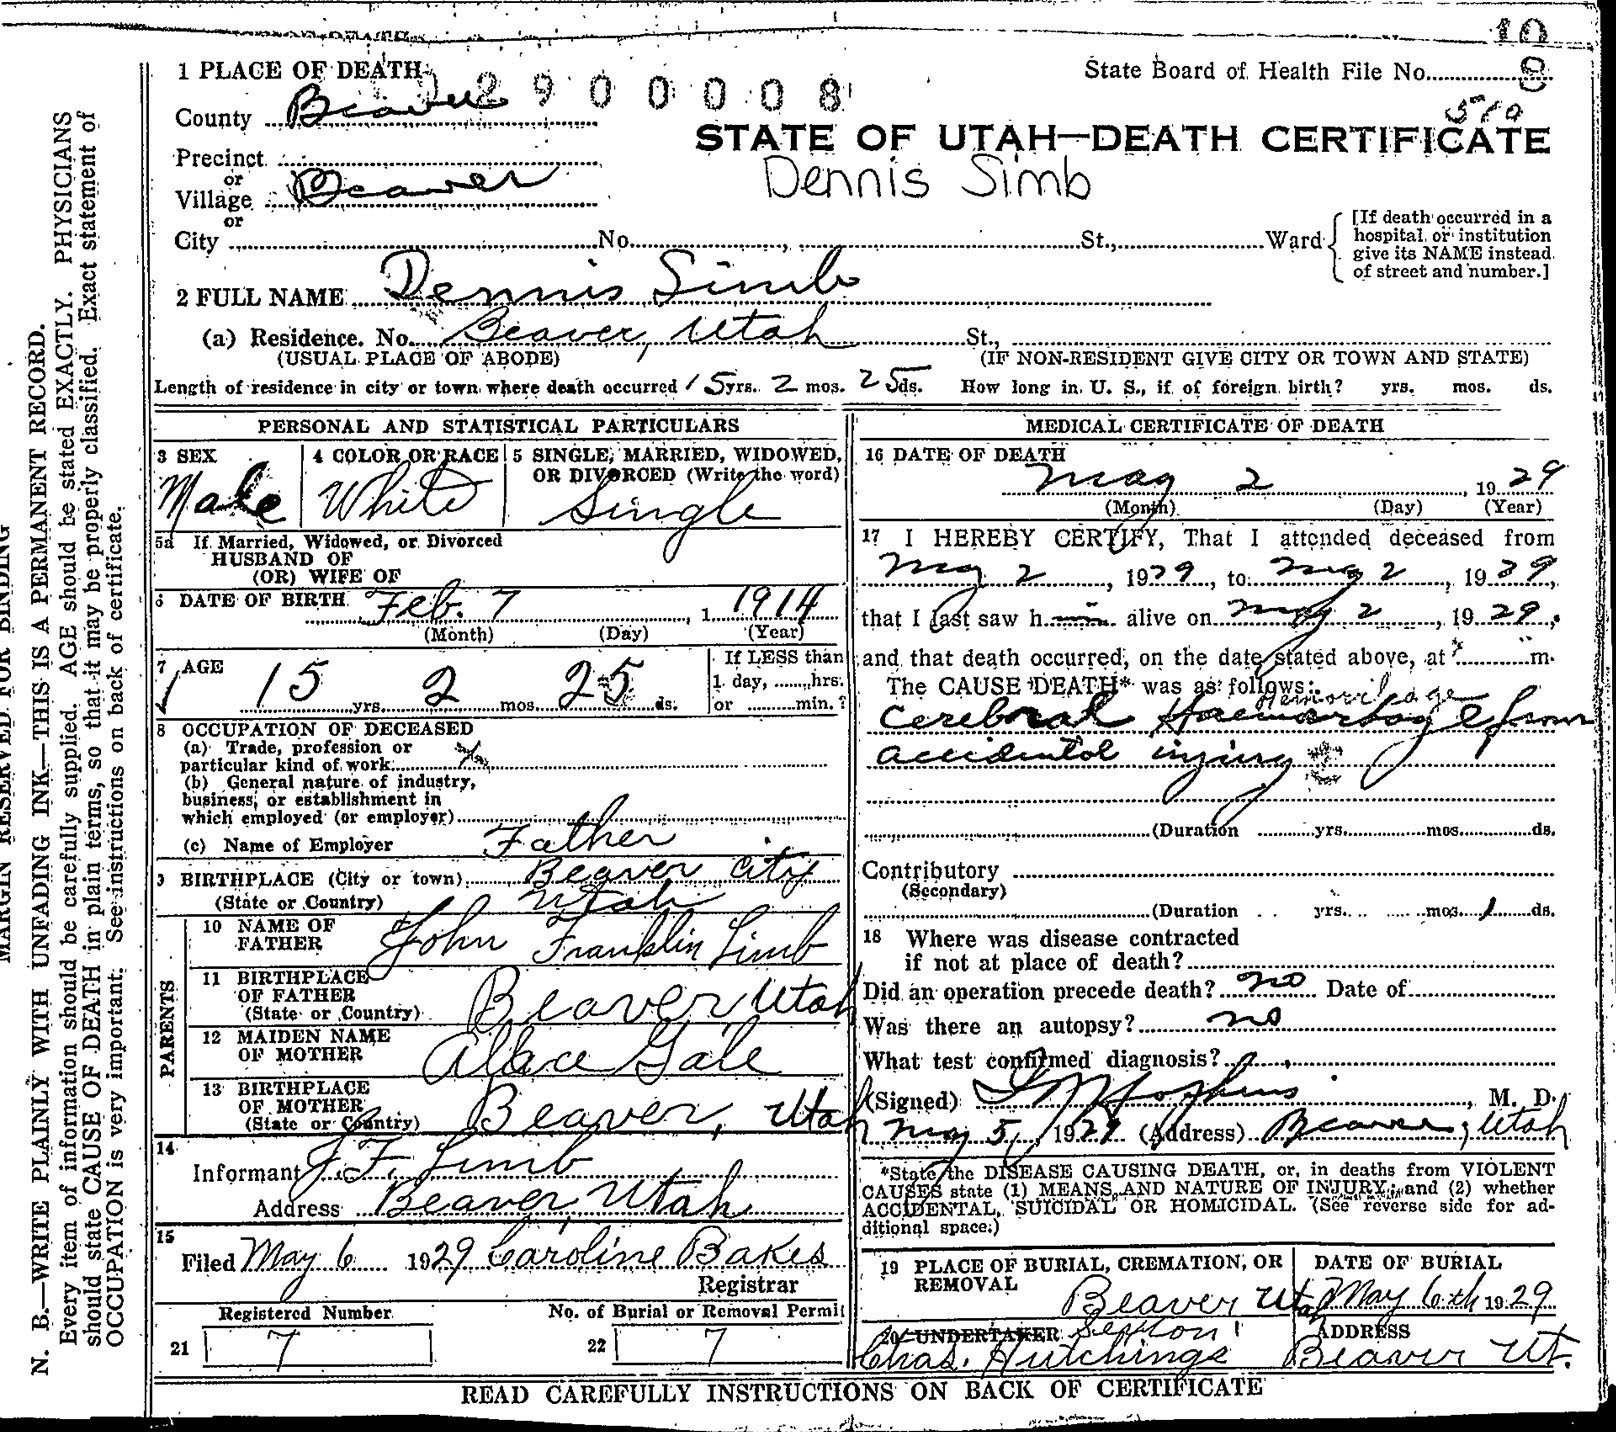 10
1 PLACE OF DEATH
2900008
State Board of Health File No. 8
510
County Beaver
STATE OF UTAH—DEATH CERTIFICATE
Dennis Simb
Precinct
or
Village Beaver
or
City No. St., Ward
[If death occurred in a
hospital or institution
give its NAME instead
of street and number.]
2 FULL NAME Dennis Simb
(a) Residence. No. Beaver, Utah St.,
(USUAL PLACE OF ABODE) (IF NON-RESIDENT GIVE CITY OR TOWN AND STATE)
Length of residence in city or town where death occurred 15 yrs. 2 mos. 25 ds. How long in U. S., if of foreign birth? yrs. mos. ds.
PERSONAL AND STATISTICAL PARTICULARS
3 SEX
Male
4 COLOR OR RACE
White
5 SINGLE, MARRIED, WIDOWED,
OR DIVORCED (Write the word)
Single
5a If Married, Widowed, or Divorced
HUSBAND OF
(OR) WIFE OF
6 DATE OF BIRTH Feb. 7, 1 1914
(Month) (Day) (Year)
7 AGE
15 yrs. 2 mos. 25 ds.
If LESS than
1 day, hrs.
or min.?
8 OCCUPATION OF DECEASED
(a) Trade, profession or
particular kind of work
(b) General nature of industry,
business, or establishment in
which employed (or employer)
(c) Name of Employer Father
9 BIRTHPLACE (City or town) Beaver City
(State or Country) Utah
PARENTS
10 NAME OF
FATHER John Franklin Limb
11 BIRTHPLACE
OF FATHER
(State or Country) Beaver Utah
12 MAIDEN NAME
OF MOTHER Gale
13 BIRTHPLACE
OF MOTHER
(State or Country) Beaver, Utah
14
Informant J. F. Limb
Address Beaver, Utah
15
Filed May 6 1929 Caroline Bakes
Registrar
Registered Number No. of Burial or Removal Permit
21 7 22 7
MEDICAL CERTIFICATE OF DEATH
16 DATE OF DEATH
May 2, 1929
(Month) (Day) (Year)
17 I HEREBY CERTIFY, That I attended deceased from
May 2, 1929, to May 2, 1929,
that I last saw him alive on May 2, 1929,
and that death occurred, on the date stated above, at m.
The CAUSE DEATH* was as follows:
Hemorrhage
Cerebral Haemorrhage from
accidental injury
(Duration yrs. mos. ds.
Contributory
(Secondary)
(Duration yrs. mos. 1 ds.
18 Where was disease contracted
if not at place of death?
Did an operation precede death? no Date of
Was there an autopsy? no
What test confirmed diagnosis?
(Signed) , M. D.
May 5, 1929 (Address) Beaver, Utah
*State the DISEASE CAUSING DEATH, or, in deaths from VIOLENT
CAUSES state (1) MEANS AND NATURE OF INJURY; and (2) whether
ACCIDENTAL, SUICIDAL OR HOMICIDAL. (See reverse side for ad-
ditional space.)
19 PLACE OF BURIAL, CREMATION, OR
REMOVAL
Beaver Utah
DATE OF BURIAL
May 6th 1929
20 UNDERTAKER Sexton
Chas. Hutchings
ADDRESS
Beaver Ut.
READ CAREFULLY INSTRUCTIONS ON BACK OF CERTIFICATE
MARGIN RESERVED FOR BINDING
N. B.—WRITE PLAINLY WITH UNFADING INK—THIS IS A PERMANENT RECORD.
Every item of information should be carefully supplied. AGE should be stated EXACTLY. PHYSICIANS
should state CAUSE OF DEATH in plain terms, so that it may be properly classified. Exact statement of
OCCUPATION is very important. See instructions on back of certificate.